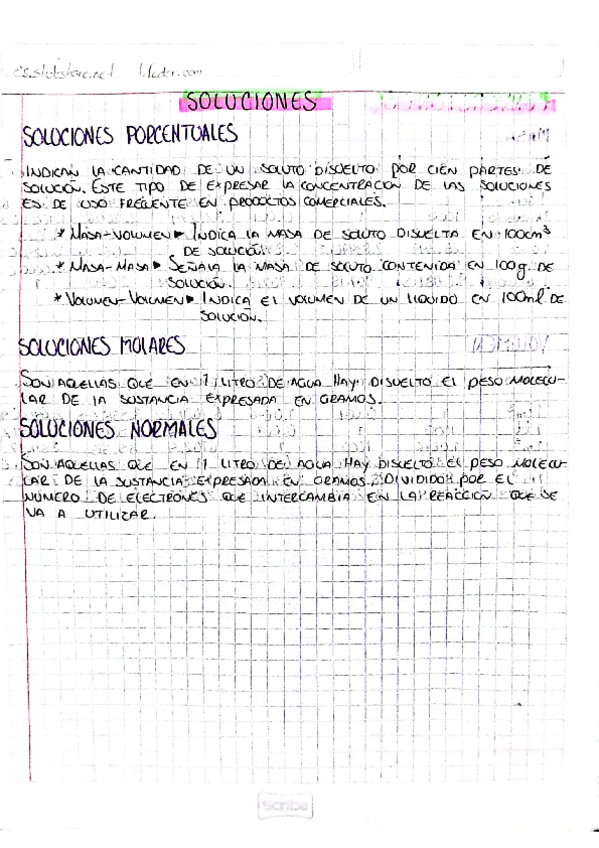 es.slideshare.net lifeder.com
SOLUCIONES
SOLUCIONES PORCENTUALES
INDICAN LA CANTIDAD DE UN SOLUTO DISUELTO POR CIEN PARTES DE
SOLUCIÓN. ESTE TIPO DE EXPRESAR LA CONCENTRACION DE LAS SOLUCIONES
ES DE USO FRECUENTE EN PRODUCTOS COMERCIALES.
* MASA-VOLUMEN▶ INDICA LA MASA DE SOLUTO DISUELTA EN 100cm³
DE SOLUCIÓN.
* MASA-MASA▶ SEÑALA LA MASA DE SOLUTO CONTENIDA EN 100g DE
SOLUCIÓN.
* VOLUMEN-VOLUMEN▶ INDICA El VOLUMEN DE UN LIQUIDO EN 100ml DE
SOLUCIÓN.
SOLUCIONES MOLARES
SON AQUELLAS QUE EN 1 LITRO DE AGUA HAY DISUELTO EL PESO MOLECU-
LAR DE LA SUSTANCIA EXPRESADA EN GRAMOS.
SOLUCIONES NORMALES
SON AQUELLAS QUE EN 1 LITRO DE AGUA HAY DISUELTO EL PESO MOLECU-
LAR DE LA SUSTANCIA EXPRESADA EN GRAMOS DIVIDIDO POR EL
NÚMERO DE ELECTRONES QUE INTERCAMBIA EN LA REACCIÓN QUE SE
VA A UTILIZAR.
scribe